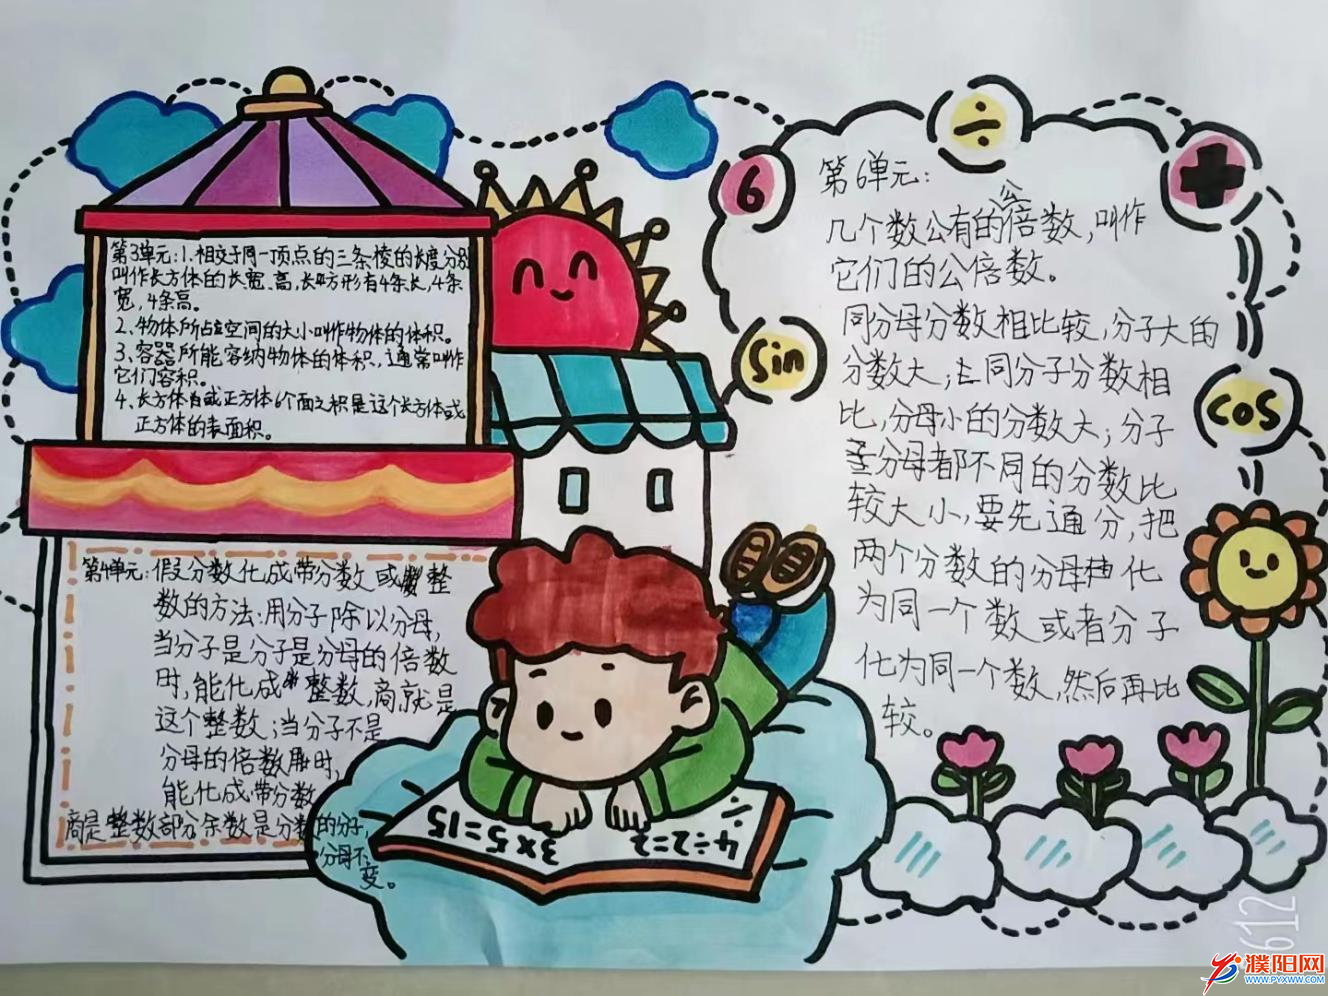 第3单元:1.相交于同一顶点的三条棱的长度分别
叫作长方体的长宽、高,长方形有4条长,4条
宽,4条高。
2、物体所占空间的大小叫作物体的体积。
3、容器所能容纳物体的体积、通常叫作
它们容积。
4、长方体或正方体6个面之积是这个长方体或
正方体的表面积。
第4单元:假分数化成带分数或整
数的方法:用分子除以分母,
当分子是分子是分母的倍数
时,能化成整数,商就是
这个整数;当分子不是
分母的倍数时,
能化成带分数
商是整数部分余数是分数的分子,
分母不
变。
6
÷
sin
cos
第6单元:
几个数公有的公倍数,叫作
它们的公倍数。
同分母分数相比较,分子大的
分数大;同分子分数相
比,分母小的分数大;分子
分母都不同的分数比
较大小,要先通分,把
两个分数的分母化
为同一个数或者分子
化为同一个数,然后再比
较。
3×5=15
4÷2=2
÷
612
濮阳网
WWW.PYXWW.COM